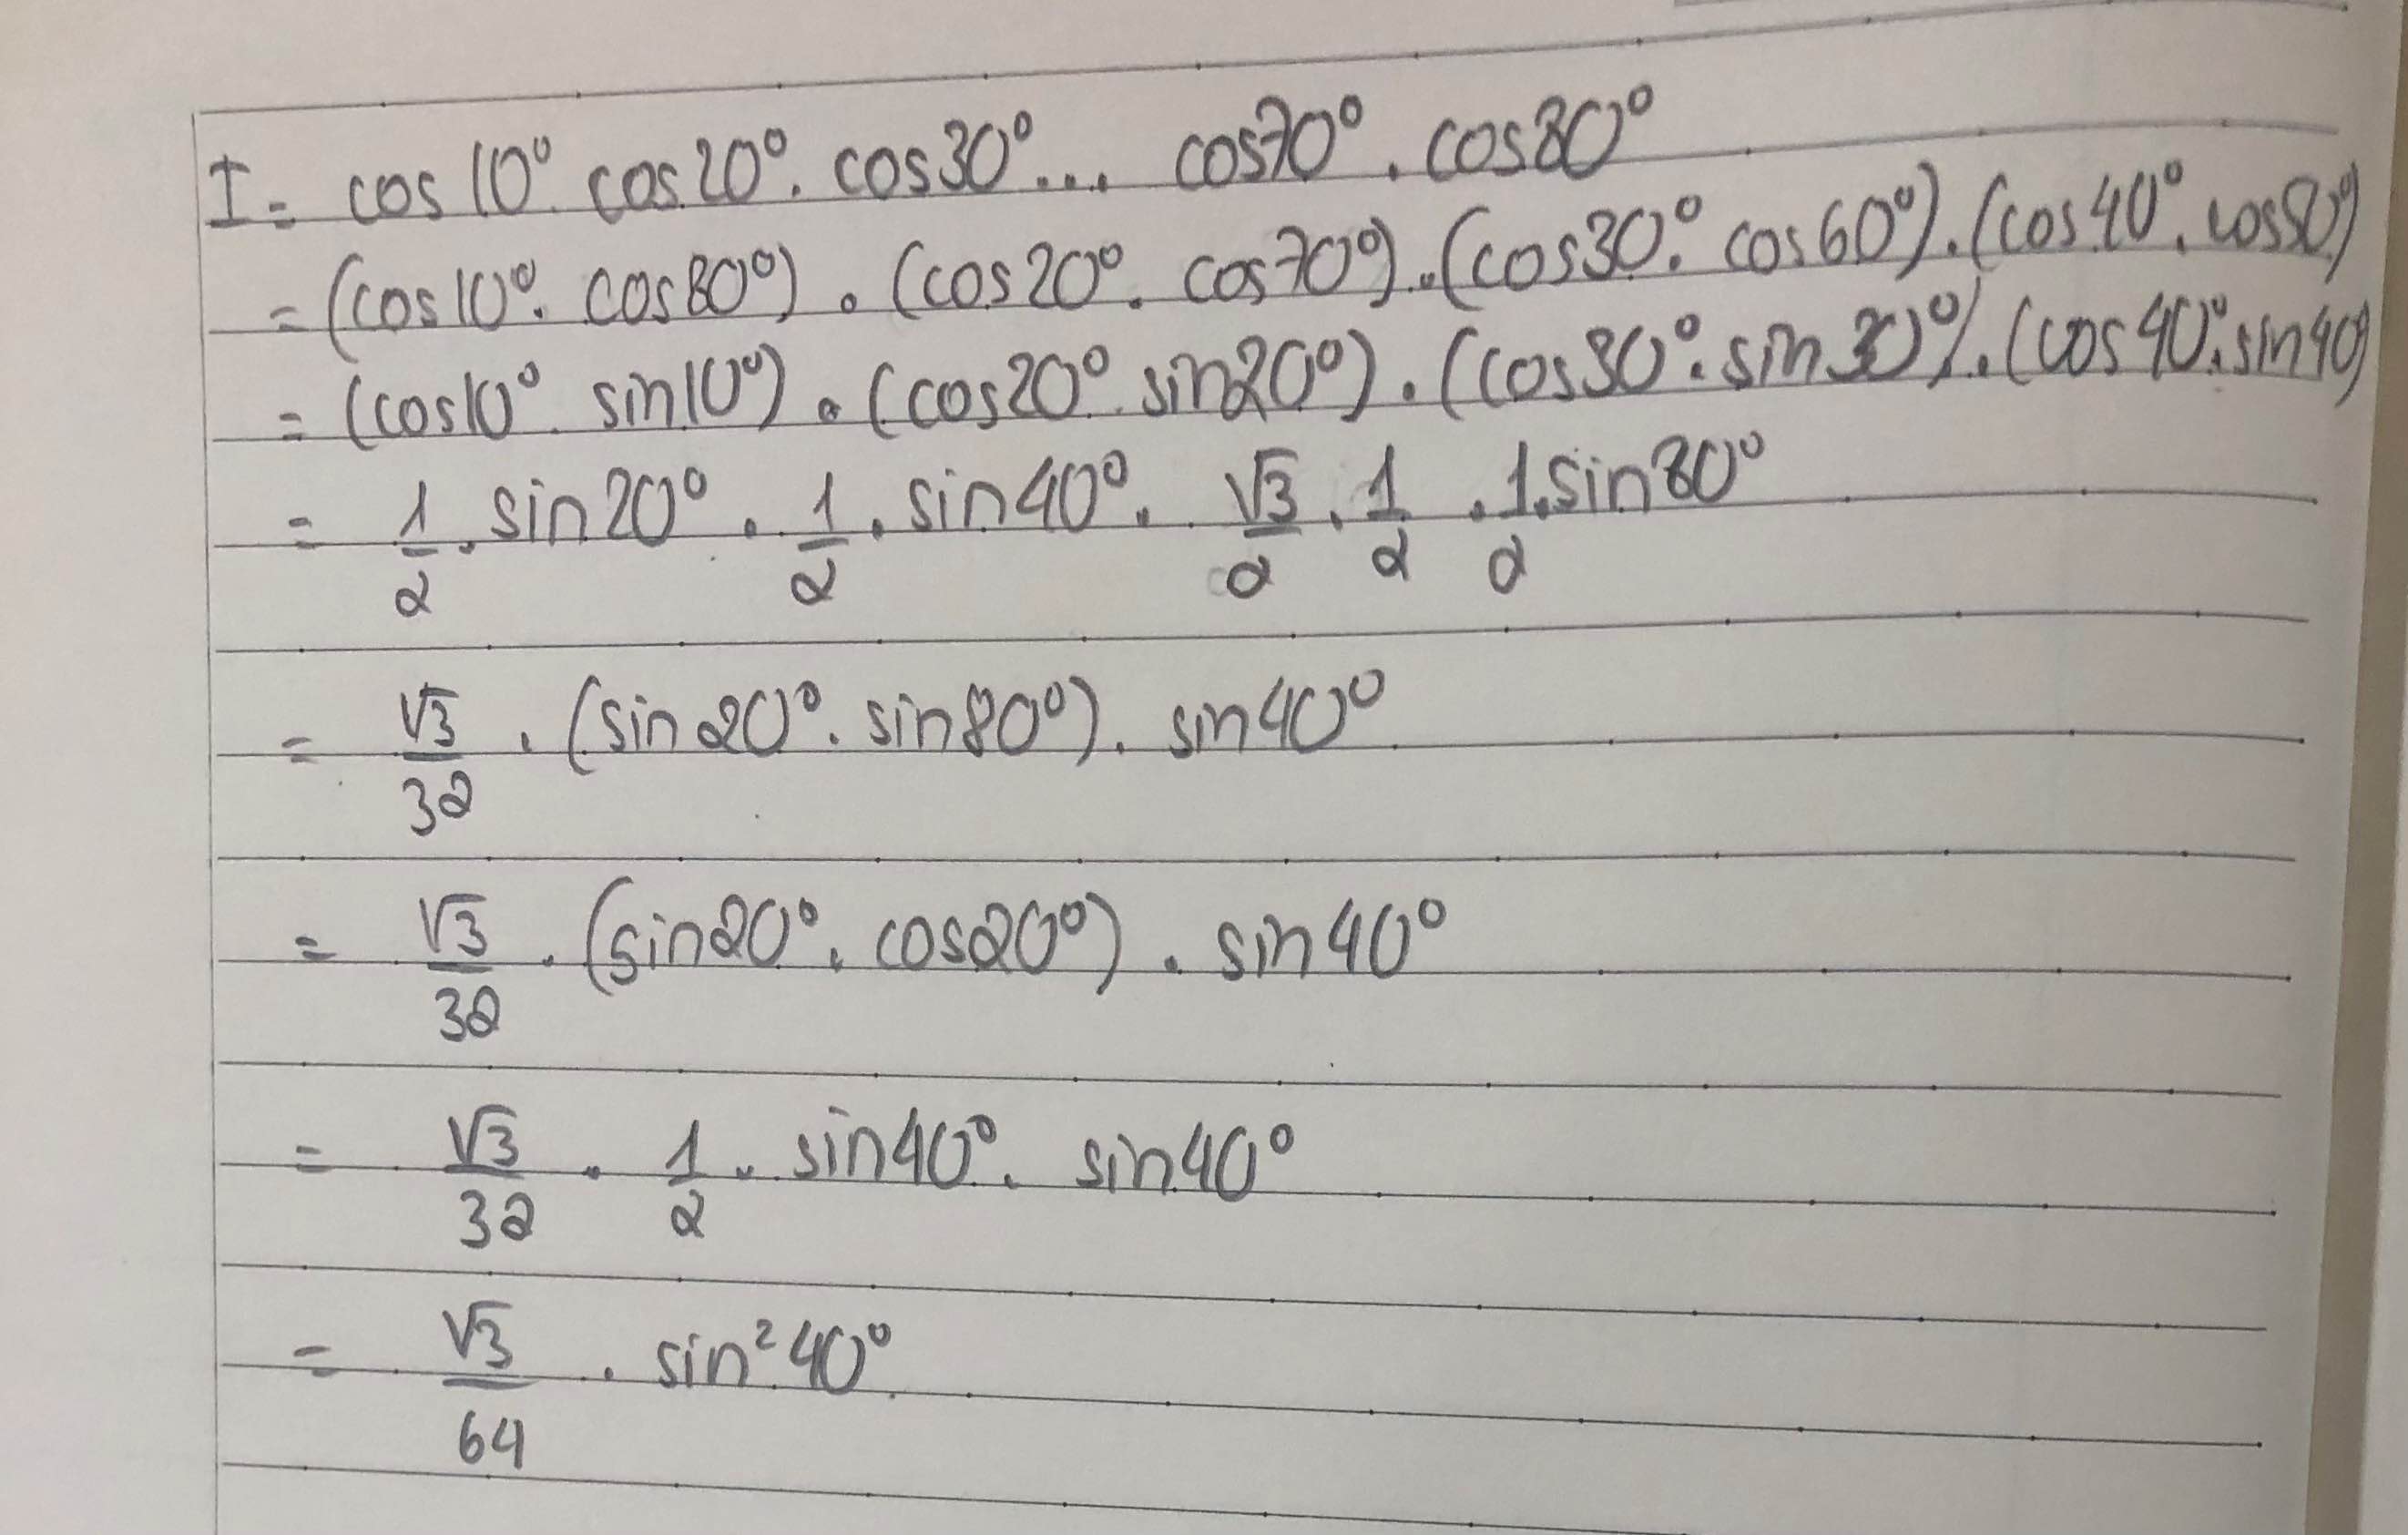 I = cos10°. cos20°. cos30°... cos70°. cos80°
= (cos10°. cos80°). (cos20°. cos70°). (cos30°. cos60°). (cos40°. cos50°)
= (cos10°. sin10°). (cos20°. sin20°). (cos30°. sin30°). (cos40°. sin40)
= 1/2 . sin20° . 1/2 . sin40° . √3/2 . 1/2 . 1/2 . sin80°
= √3/32 . (sin20°. sin80°). sin40°
= √3/32 . (sin20°. cos20°). sin40°
= √3/32 . 1/2 . sin40°. sin40°
= √3/64 . sin²40°